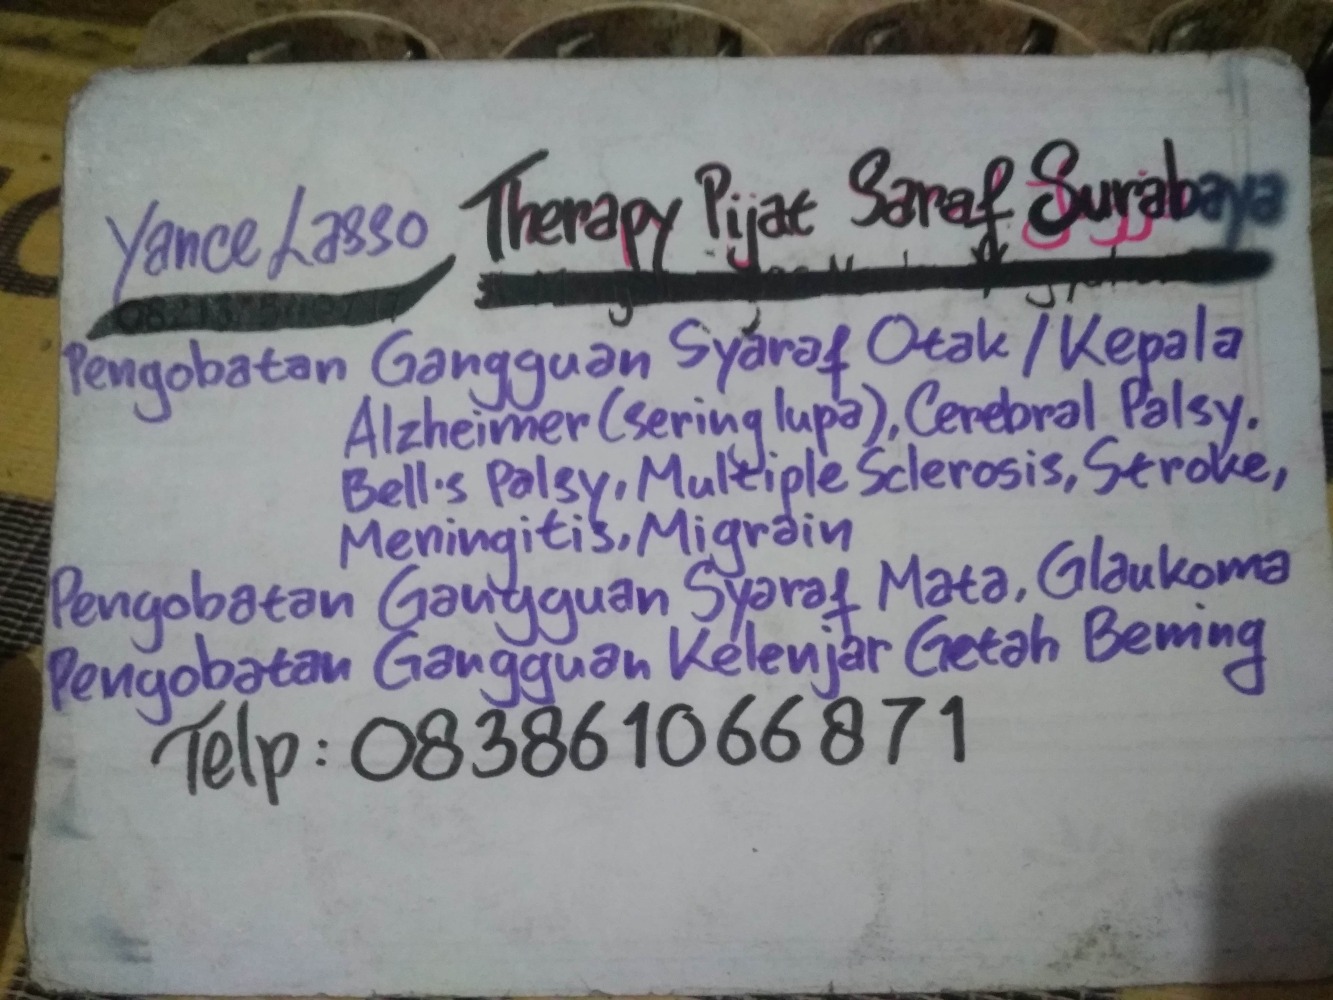 Yance Lasso Therapy Pijat Saraf Surabaya
Pengobatan Gangguan Syaraf Otak / Kepala
Alzheimer (sering lupa), Cerebral Palsy.
Bell's Palsy, Multiple Sclerosis, Stroke,
Meningitis, Migrain
Pengobatan Gangguan Syaraf Mata, Glaukoma
Pengobatan Gangguan Kelenjar Getah Bening
Telp : 083861066871